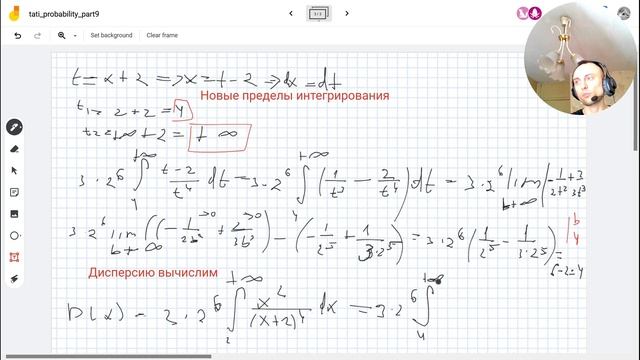 tati_probability_part9
3 / 3
Set background
Clear frame
t = x + 2 => x = t - 2 => dx = dt
Новые пределы интегрирования
t₁ = 2 + 2 = 4
t₂ = +∞ + 2 = +∞
3 · 2⁶ ∫₄^{+∞} (t-2)/t⁴ dt = 3 · 2⁶ ∫₄^{+∞} (1/t³ - 2/t⁴) dt = 3 · 2⁶ lim_{b→+∞}
3 · 2⁶ lim_{b→+∞} - (-1/2⁵ + 1/(3·2⁵)) = 3 · 2⁶ (1/2⁵ - 1/(3·2⁵)) =
|₄ᵇ
6-2=4
Дисперсию вычислим
D(x) - 3 · 2⁶ ∫₂^{+∞} x²/(x+2)⁴ dx = 3 · 2⁶ ∫₄^{+∞}